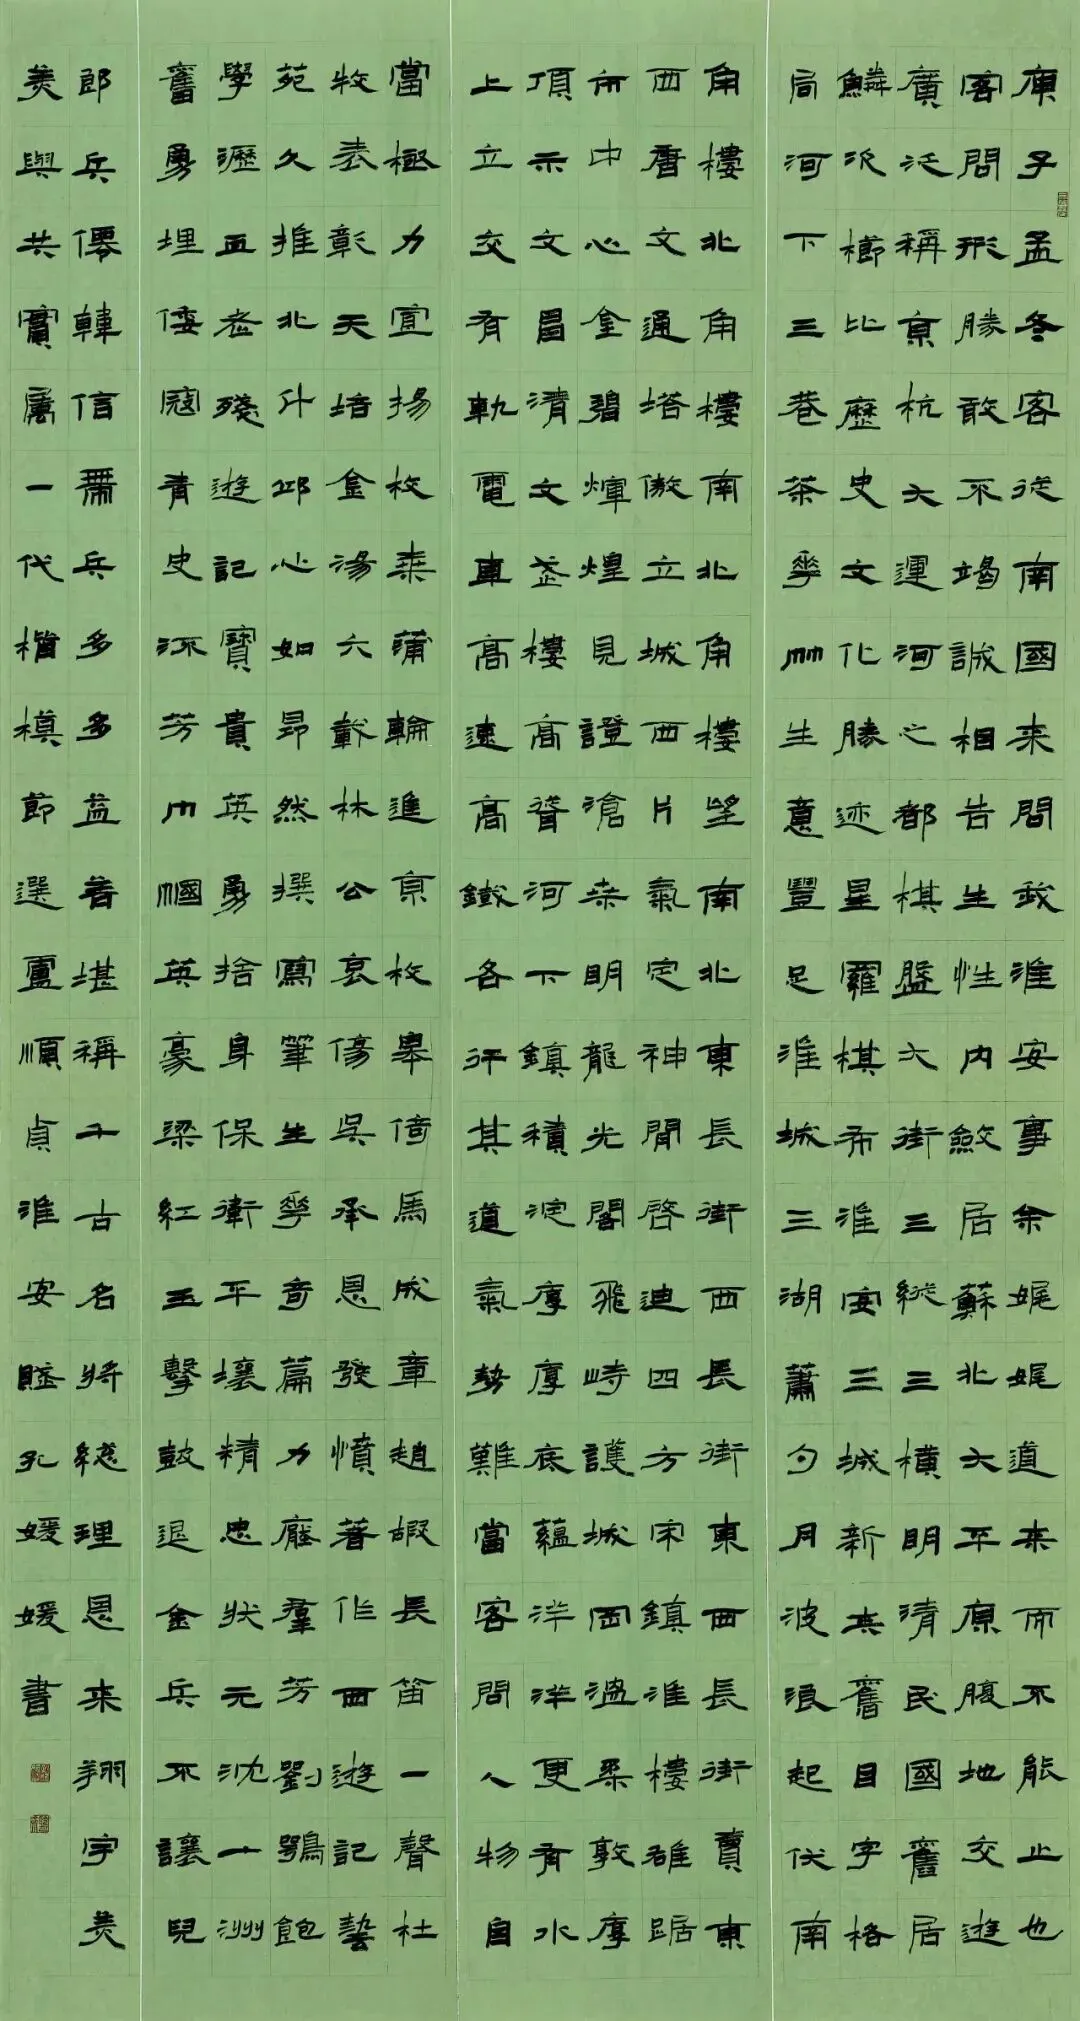 庚子孟冬客從南國来問我淮安事余娓娓道来而不能止也
客問形勝敢不竭誠相告生性内斂居蘇北大平原腹地交遊
廣泛稱京杭大運河之都棋盤六街三縱三横明清民國舊居
鱗次櫛比歷史文化勝迹星羅棋布淮安三城新共舊目字格
局河下三巷茶華卌生意豐足淮城三湖蕭勺月波浪起伏南
角樓北角樓南北角樓望南北東長街西長街東西長街貫東
西唐文通塔傲立城西片氣定神閒啓迪四方宋鎮淮樓雄踞
市中心金碧煇煌見證滄桑明龍光閣飛峙護城岡溫柔敦厚
頂示文昌清文樓高聳河下鎮積淀厚厚底蘊洋洋更有水
上立交有軌電車高速高鐵各行其道氣勢難當客問人物自
當極力宣揚枚乘蒲輪進京枚皋倚馬成章趙嘏長笛一聲杜
牧表彰天培金湯六載林公哀傷吳承恩發憤著作西遊記藝
苑久推北斗邱心如昂然撰寫筆生華奇篇力壓羣芳劉鶚飽
學瀝血老殘遊記寶貴英勇捨身保衛平壤精忠狀元沈十洲
奮勇埋倭寇青史流芳巾幗英豪梁紅玉擊鼓退金兵不讓兒
郎兵僊韓信用兵多多益善堪稱千古名将總理恩来翔宇美
美與共實屬一代楷模節選盧順貞淮安賦孔媛媛書